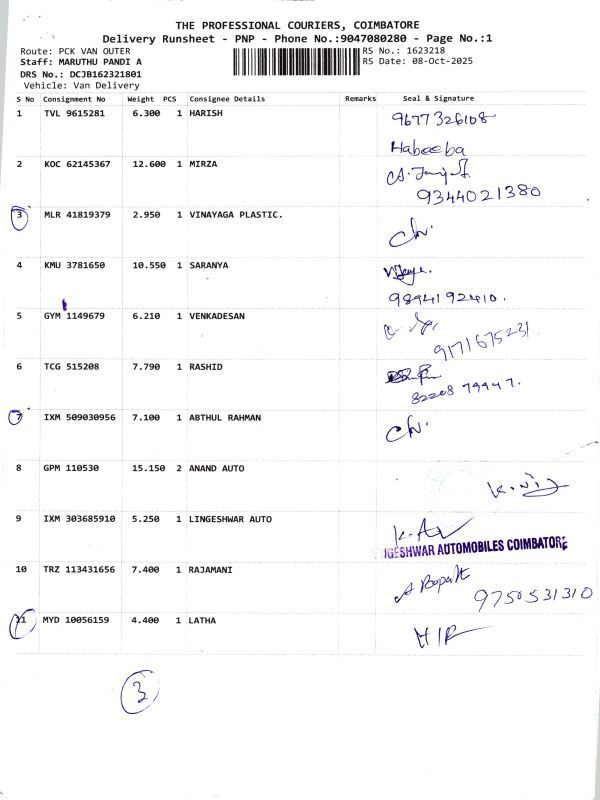 THE PROFESSIONAL COURIERS, COIMBATORE
Delivery Runsheet - PNP - Phone No.:9047080280 - Page No.:1
Route: PCK VAN OUTER
RS No.: 1623218
Staff: MARUTHU PANDI A
RS Date: 08-Oct-2025
DRS No.: DCJB162321801
Vehicle: Van Delivery
S No Consignment No Weight PCS Consignee Details Remarks Seal & Signature
1 TVL 9615281 6.300 1 HARISH 9677326108
Habeeba
2 KOC 62145367 12.600 1 MIRZA
9344021380
3 MLR 41819379 2.950 1 VINAYAGA PLASTIC.
4 KMU 3781650 10.550 1 SARANYA
9894192410.
5 GYM 1149679 6.210 1 VENKADESAN
9171675231
6 TCG 515208 7.790 1 RASHID
82208 79947.
7 IXM 509030956 7.100 1 ABTHUL RAHMAN
8 GPM 110530 15.150 2 ANAND AUTO
9 IXM 303685910 5.250 1 LINGESHWAR AUTO
NGESHWAR AUTOMOBILES COIMBATORE
10 TRZ 113431656 7.400 1 RAJAMANI
9750531310
11 MYD 10056159 4.400 1 LATHA
3